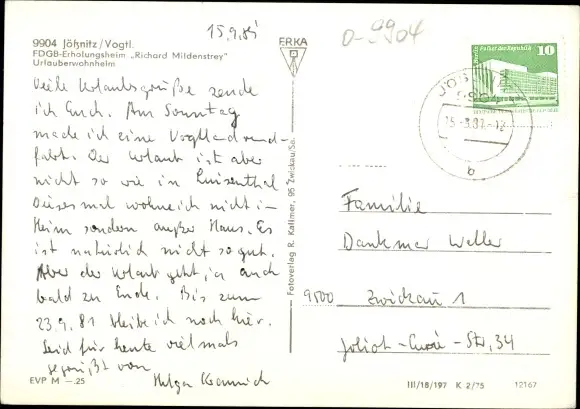 15.9.81
D-9904
9904 Jößnitz/Vogtl.
FDGB-Erholungsheim „Richard Mildenstrey"
Urlauberwohnheim
ERKA
Palast der Republik
10
Viele Urlaubsgrüße sende
ich Euch. Am Sonntag
mache ich eine Vogtlandrund-
fahrt. Der Urlaub ist aber
nicht so wie in Luisenthal
Diesesmal wohne ich nicht im
Heim sondern außer Haus. Es
ist natürlich nicht so gut.
Aber der Urlaub geht ja auch
bald zu Ende. Bis zum
23.9.81 bleibe ich noch hier.
Seid für heute vielmals
gegrüßt von
Helga
Fotoverlag R. Kallmer, 95 Zwickau/Sa.
Familie
Dankmar Weller
9500 Zwickau 1
Joliot-Curie-Str. 34
EVP M —.25
III/18/197 K 2/75 12167